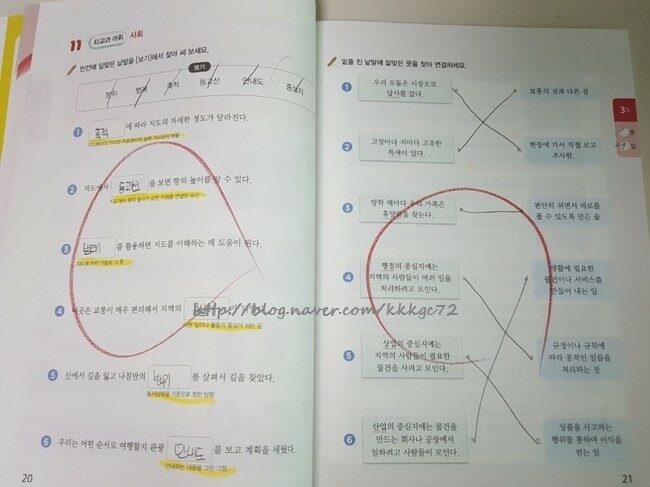 11 타교과 어휘 사회
빈칸에 알맞은 낱말을 [보기]에서 찾아 써 보세요.
보기
방위 범례 축척 등고선 안내도 중심지
1 축척 에 따라 지도의 자세한 정도가 달라진다.
지도에서의 거리와 지표에서의 실제 거리와의 비율
2 지도에서 등고선 을 보면 땅의 높이를 알 수 있다.
지도에서 땅의 높이가 같은 지점을 연결한 곡선
3 범례 를 활용하면 지도를 이해하는 데 도움이 된다.
지도에 쓰인 기호와 그 뜻
4 이곳은 교통이 매우 편리해서 지역의
어떤 일이나 활동의 중심이 되는 곳
5 산에서 길을 잃고 나침반의 를 살펴서 길을 찾았다.
동서남북을 기준으로 정한 방향
6 우리는 어떤 순서로 여행할지 관광 안내도 를 보고 계획을 세웠다.
안내하는 내용을 그린 그림
20
밑줄 친 낱말에 알맞은 뜻을 찾아 연결하세요.
1 우리 모둠은 시장으로
답사를 갔다.
보통의 것과 다른 점
2 고장마다 저마다 고유한
특색이 있다.
현장에 가서 직접 보고
조사함.
3 방학 때마다 우리 가족은
휴양림을 찾는다.
편안히 쉬면서 피로를
풀 수 있도록 만든 숲
4 행정의 중심지에는
지역의 사람들이 여러 일을
처리하려고 모인다.
생활에 필요한
물건이나 서비스를
만들어 내는 일
5 상업의 중심지에는
지역의 사람들이 필요한
물건을 사려고 모인다.
규정이나 규칙에
따라 공적인 일들을
처리하는 것
6 산업의 중심지에는 물건을
만드는 회사나 공장에서
일하려고 사람들이 모인다.
상품을 사고파는
행위를 통하여 이익을
얻는 일
3주
월
일
21
http://blog.naver.com/kkkgc72